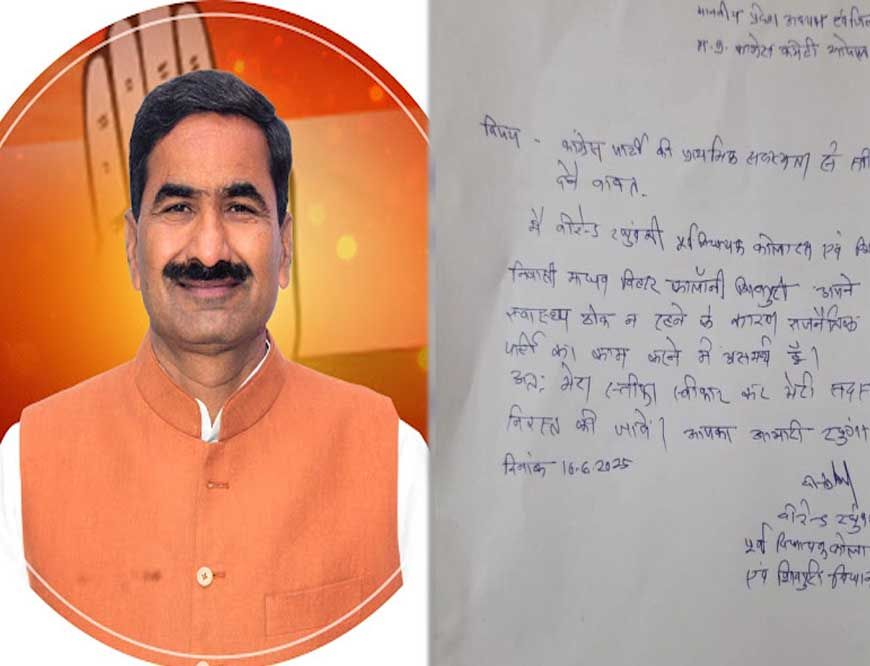 माननीय प्रदेश अध्यक्ष एवं
म.प्र. कांग्रेस कमेटी भोपाल
विषय - कांग्रेस पार्टी की प्राथमिक सदस्यता से
देने बावत.
मैं वीरेन्द्र रघुवंशी पूर्व विधायक कोलारस एवं
निवासी माधव विहार कॉलोनी शिवपुरी अपने
स्वास्थ्य ठीक न रहने के कारण राजनैतिक
पार्टी का काम करने में असमर्थ हूँ।
अतः मेरा स्तीफा स्वीकार कर मेरी
निरस्त की जावे। आपका आभारी
दिनांक 16-6-2025
वीरेन्द्र
पूर्व विधायक
एवं शिवपुरी